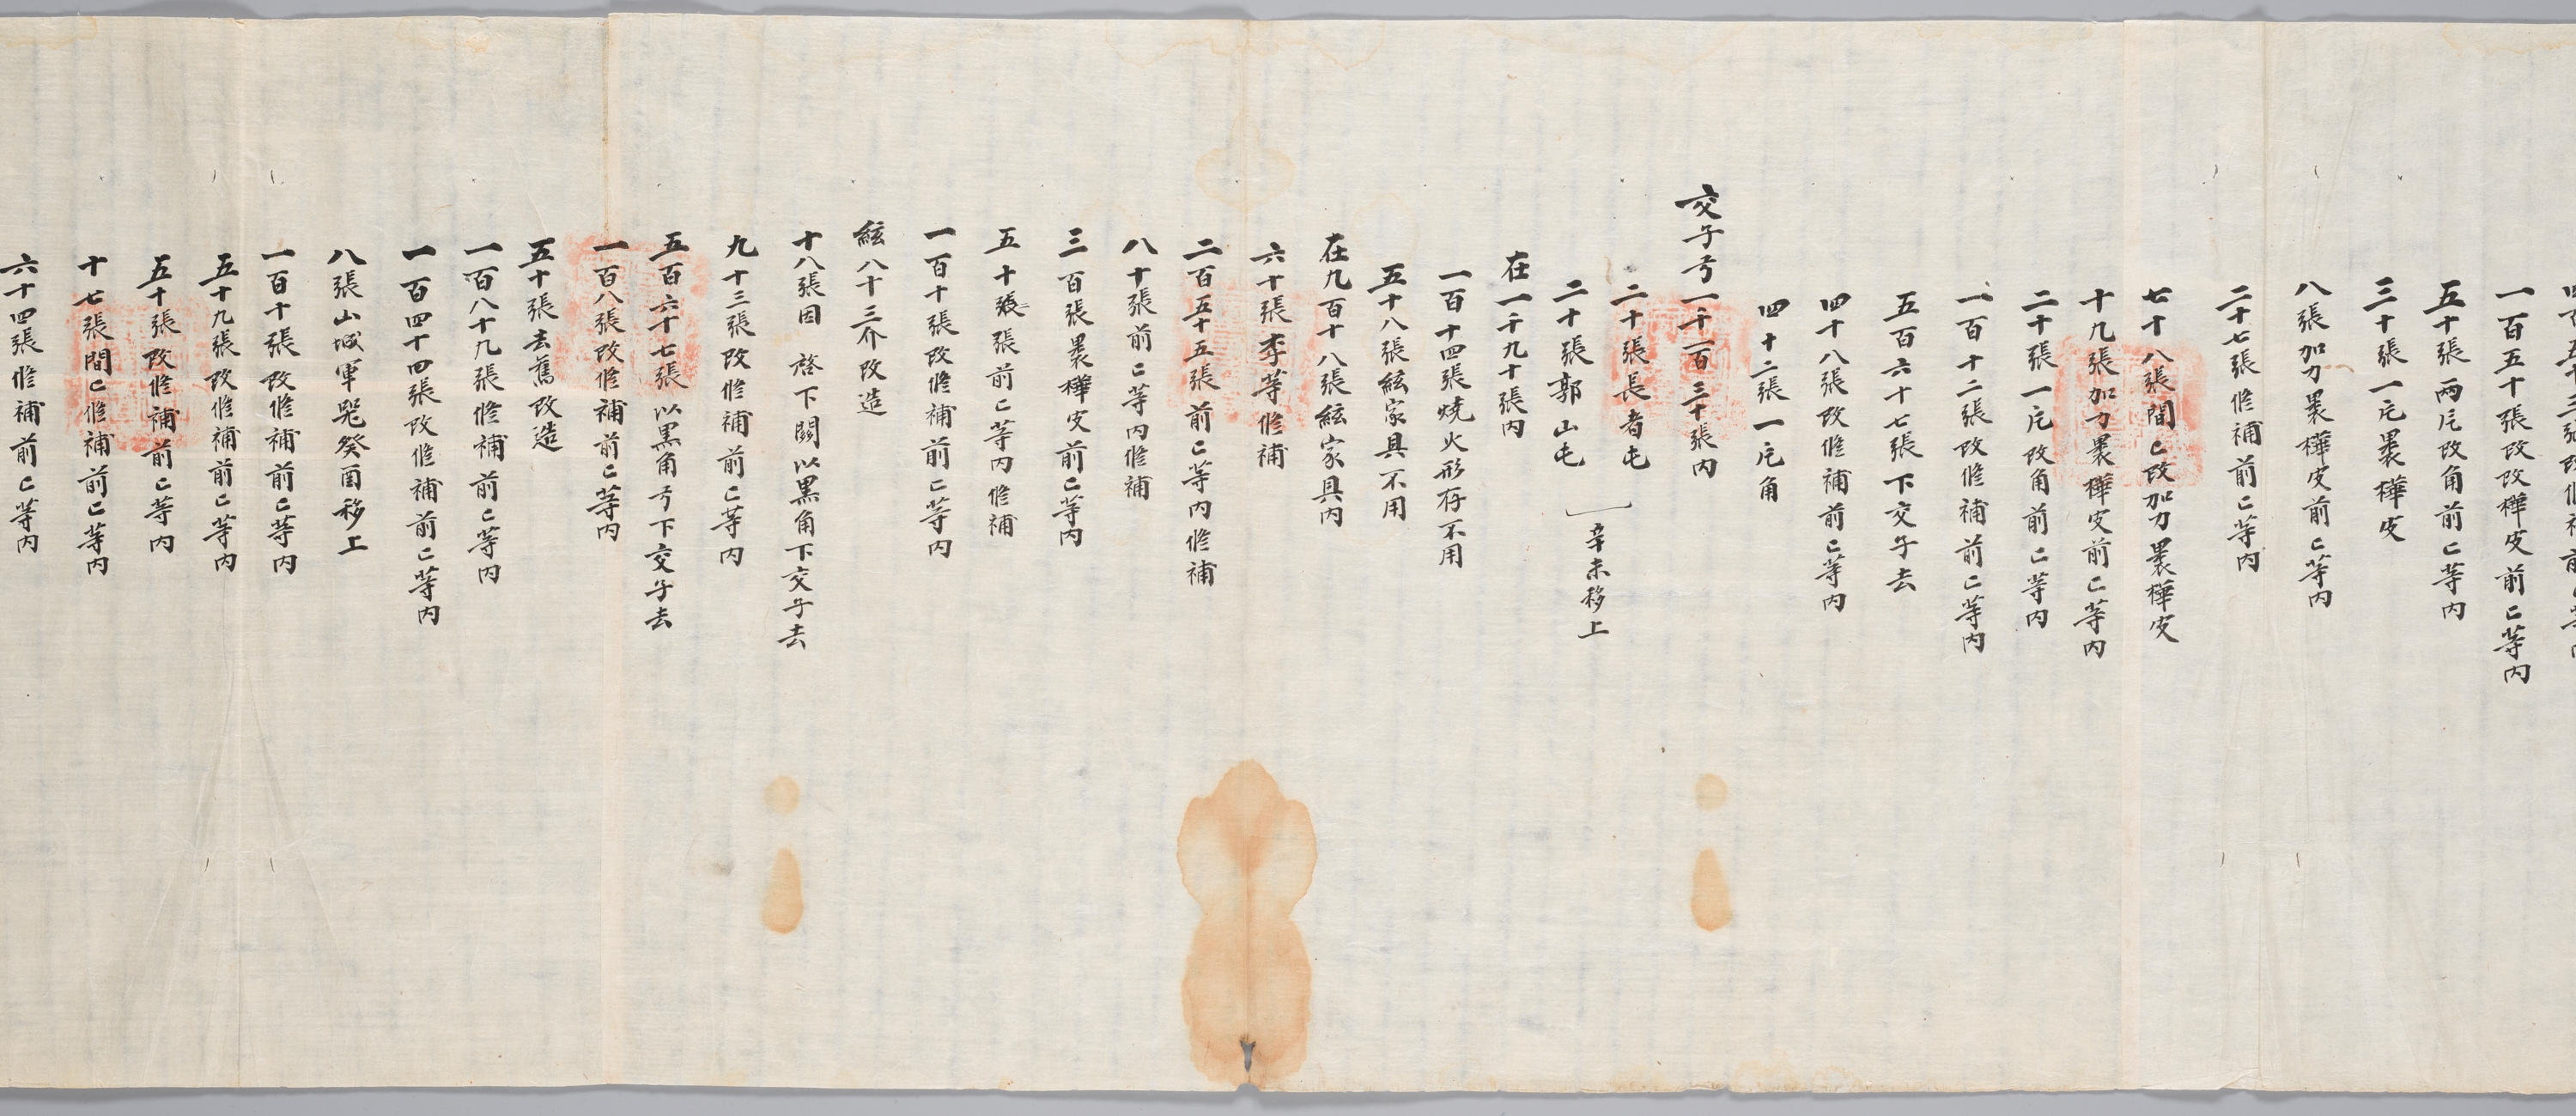 一百五十張改改樺皮前亡等內
五十張兩庀改角前亡等內
三十張一庀裹樺皮
八張加刀裹樺皮前亡等內
二十七張修補前亡等內
七十八張間亡改加刀裹樺皮
十九張加刀裹樺皮前亡等內
二十張一庀改角前亡等內
一百十二張改修補前亡等內
五百六十七張下交子去
四十八張改修補前亡等內
四十二張一庀角
交子亐一千一百三十張內
二十張長者屯
二十張郭山屯
辛未移上
在一千九十張內
一百十四張燒火形存不用
五十八張絃家具不用
在九百十八張絃家具內
六十張李等修補
二百五十五張前亡等內修補
八十張前亡等內修補
三百張裹樺皮前亡等內
五十張前亡等內修補
一百十張改修補前亡等內
絃八十三介改造
十八張因 啓下關以黑角下交子去
九十三張改修補前亡等內
五百六十七張以黑角亐下交子去
一百八張改修補前亡等內
五十張去舊改造
一百八十九張修補前亡等內
一百四十四張改修補前亡等內
八張山城軍器癸酉移上
一百十張改修補前亡等內
五十九張改修補前亡等內
五十張改修補前亡等內
十七張間亡修補前亡等內
六十四張修補前亡等內